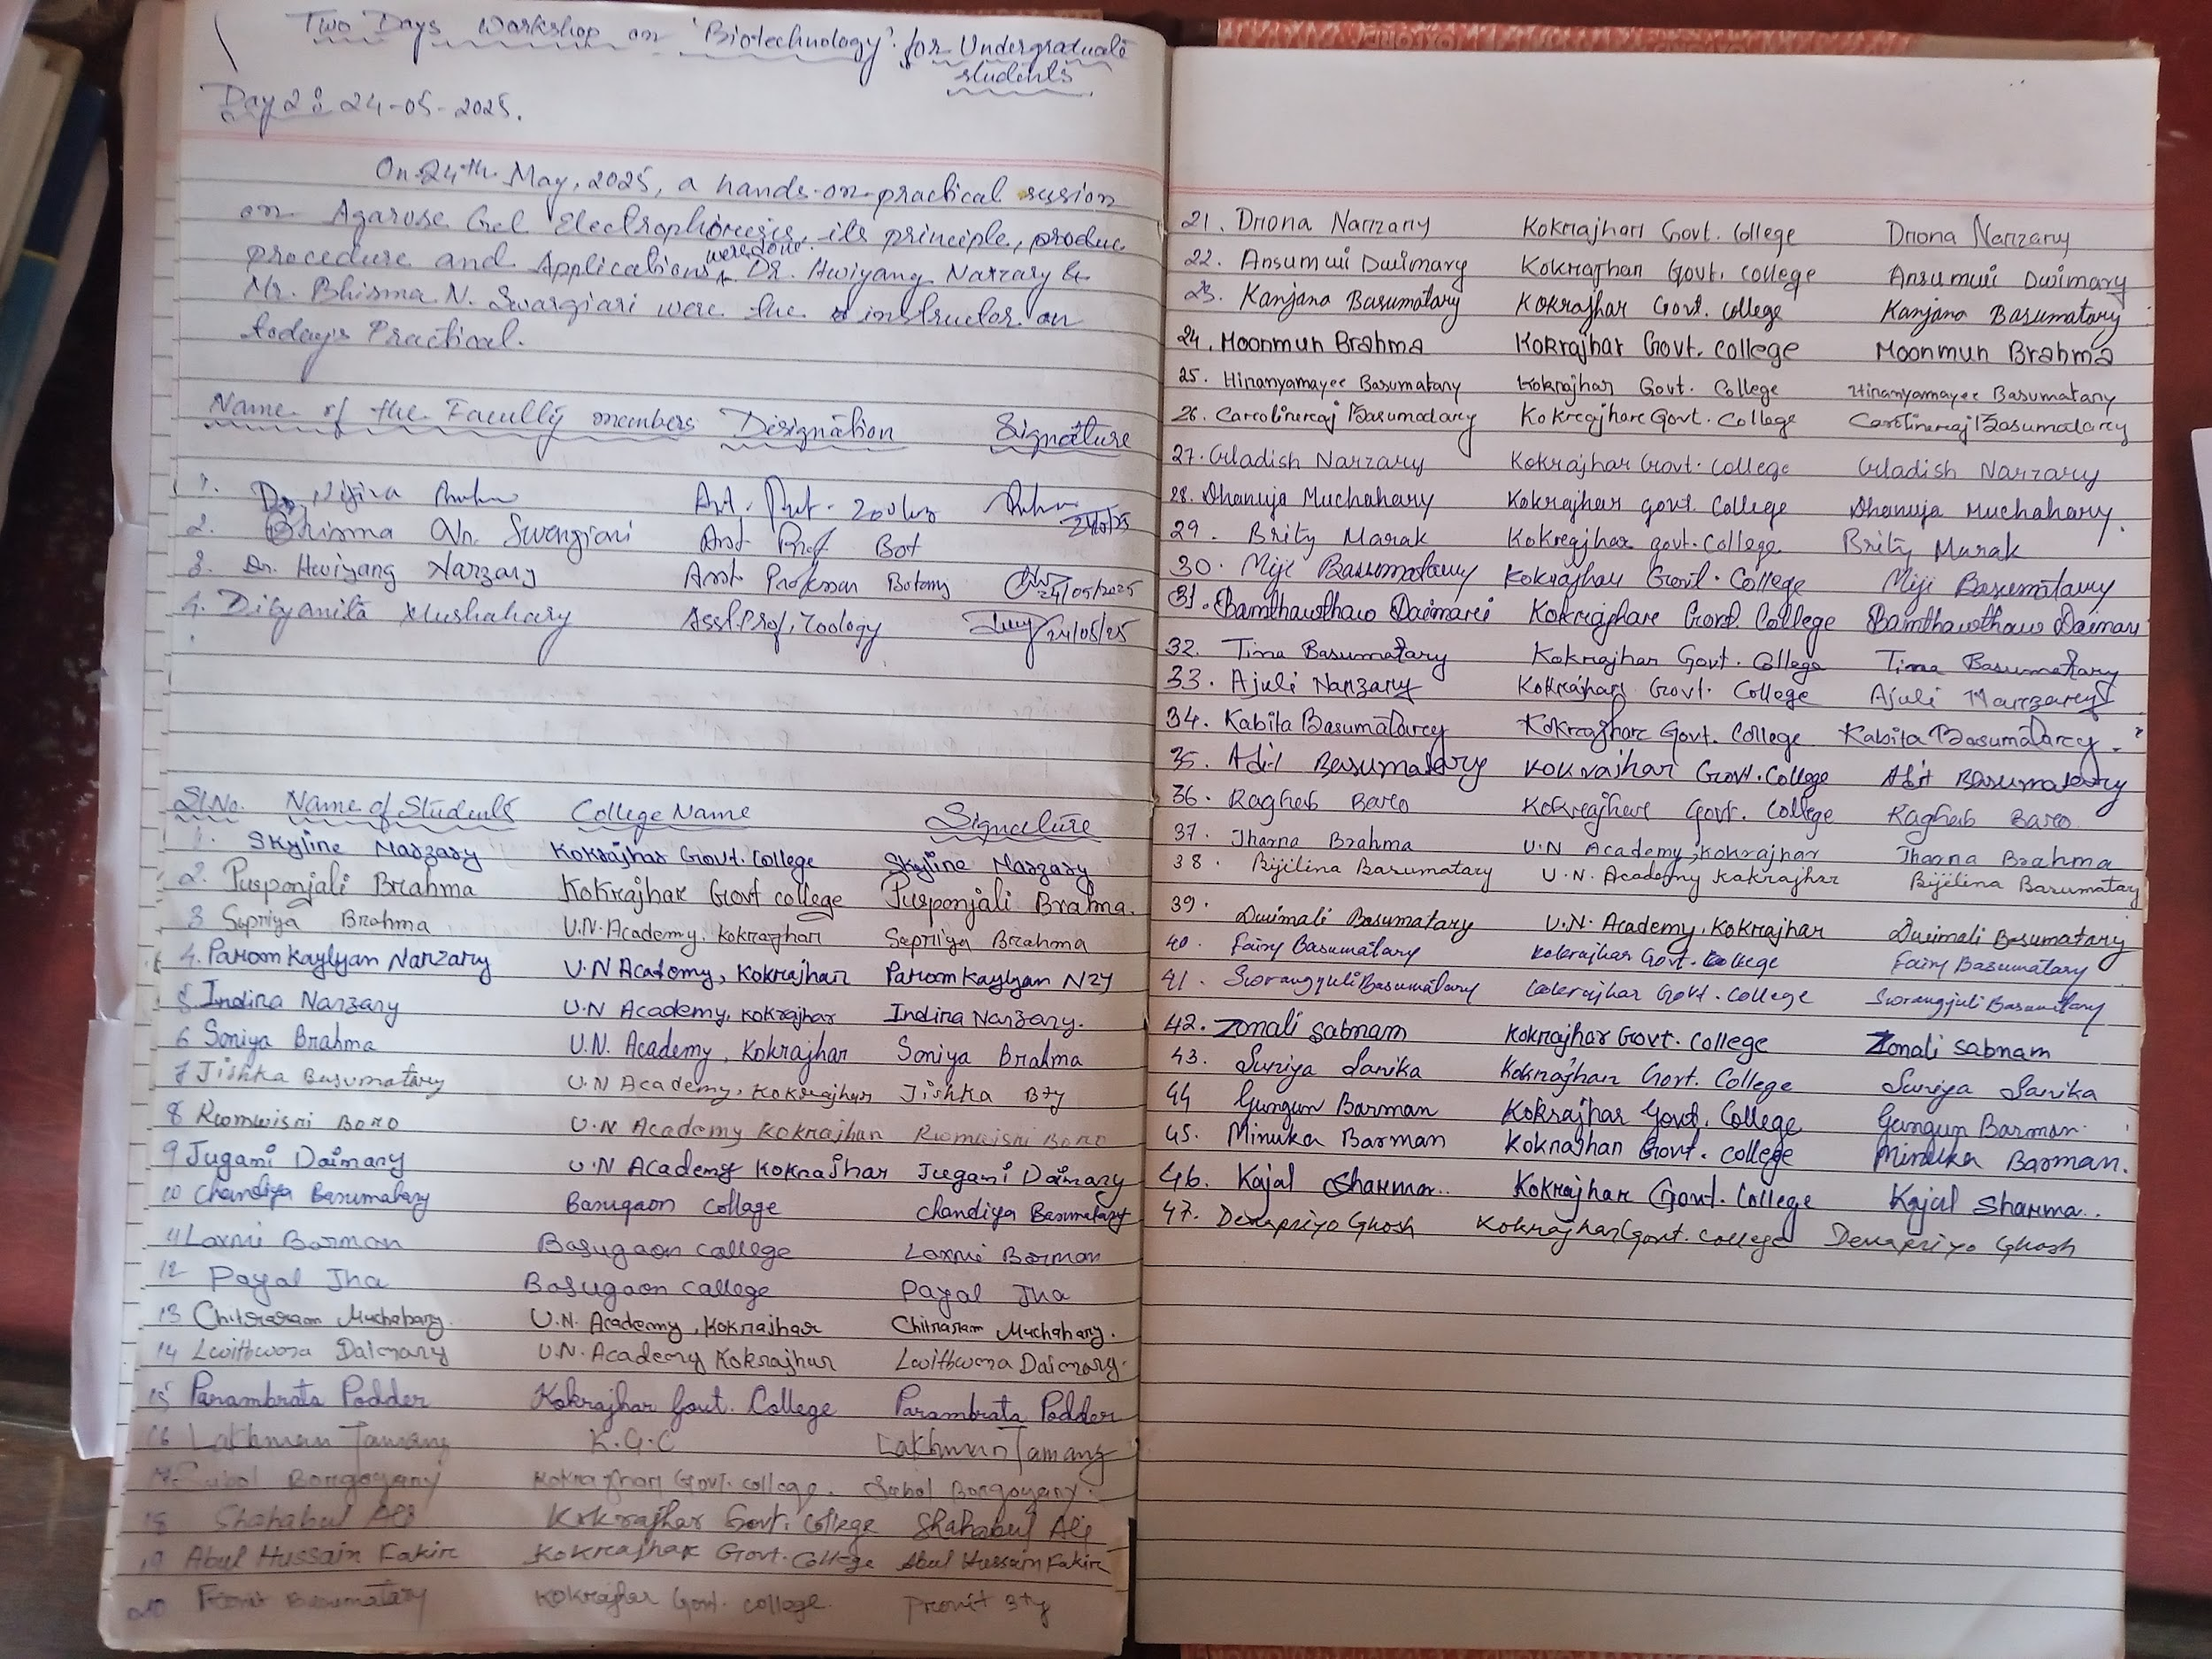 Two Days Workshop on 'Biotechnology' for Undergraduate
students
Day 2 : 24-05-2025.
On 24th May, 2025, a hands-on-practical session
on Agarose Gel Electrophoresis, its principle, produc
procedure and Applications were done. Dr. Hwiyang Narzary &
Mr. Bhisma N. Swargiari were the instructor on
today's Practical.
Name of the Faculty members Designation Signature
1. Dr. Nijira
2. Bhisma Swargiari Asst Prof Bot
3. Dr. Hwiyang Narzary Asst Professor Botany 24/05/2025
4. Dityamita Mushahary Asst. Prof, Zoology 24/05/25
Sl.No. Name of Students College Name Signature
1. Skyline Narzary Kokrajhar Govt. College Skyline Narzary
2. Pusponjali Brahma Kokrajhar Govt college Pusponjali Brahma.
3 Sapriya Brahma U.N. Academy, Kokrajhar Sapriya Brahma
4. Paroom Kaylyan Narzary U.N Academy, Kokrajhar Paroom Kaylyan Nzy
5 Indira Narzary U.N Academy, Kokrajhar Indira Narzary.
6 Soniya Brahma U.N. Academy, Kokrajhar Soniya Brahma
7 Jishka Basumatary U.N Academy, Kokrajhar Jishka Bty
8 Rwmwisri Boro U.N Academy Kokrajhar Rwmwisri Boro
9 Jugami Daimary U.N Academy Kokrajhar Jugami Daimary
10 Chandiya Basumatary Basugaon College Chandiya Basumatary
11 Laxmi Barman Basugaon College Laxmi Barman
12 Payal Jha Basugaon College Payal Jha
13 Chitraram Muchahary. U.N. Academy, Kokrajhar Chitraram Muchahary.
14 Lwithwma Daimary U.N. Academy Kokrajhar Lwithwma Daimary.
15 Parambrata Podder Kokrajhar Govt. College Parambrata Podder
16 Lakhman Tamang K.G.C Lakhman Tamang
17. Subol Borgoyary Kokrajhar Govt. college. Subol Borgoyary.
18 Shahabul Ali Kokrajhar Govt. College Shahabul Ali
19 Abul Hussain Fakir Kokrajhar Govt. College Abul Hussain Fakir
20 Pronit Basumatary Kokrajhar Govt. College. Pronit Bty
21. Drona Narzary Kokrajhar Govt. College Drona Narzary
22. Ansumwi Dwimary Kokrajhar Govt. College Ansumwi Dwimary
23. Kanjana Basumatary Kokrajhar Govt. College Kanjana Basumatary
24. Moonmun Brahma Kokrajhar Govt. College Moonmun Brahma
25. Hiranyamayee Basumatary Kokrajhar Govt. College Hiranyamayee Basumatary
26. Carolineraj Basumatary Kokrajhar Govt. College Carolineraj Basumatary
27. Gladish Narzary Kokrajhar Govt. College Gladish Narzary
28. Dhanuja Muchahary Kokrajhar govt. College Dhanuja Muchahary.
29. Brity Marak Kokrajhar govt. College Brity Marak
30. Miji Basumatary Kokrajhar Govt. College Miji Basumatary
31. Bamthawthaw Daimari Kokrajhar Govt. College Bamthawthaw Daimari
32. Tina Basumatary Kokrajhar Govt. College Tina Basumatary
33. Ajuli Narzary Kokrajhar Govt. College Ajuli Narzary
34. Kabita Basumatary Kokrajhar Govt. College Kabita Basumatary.
35. Adit Basumatary Kokrajhar Govt. College Adit Basumatary
36. Raghab Baro Kokrajhar Govt. College Raghab Baro
37. Jharna Brahma U.N Academy, Kokrajhar Jharna Brahma
38. Bijilina Basumatary U.N. Academy Kokrajhar Bijilina Basumatary
39. Dwimali Basumatary U.N. Academy, Kokrajhar Dwimali Basumatary
40. Fairy Basumatary Kokrajhar Govt. College Fairy Basumatary
41. Sworangjuli Basumatary Kokrajhar Govt. College Sworangjuli Basumatary
42. Zonali sabnam Kokrajhar Govt. College Zonali sabnam
43. Suriya Sarika Kokrajhar Govt. College Suriya Sarika
44 Gungun Barman Kokrajhar Govt. College Gungun Barman
45. Minuka Barman Kokrajhar Govt. College Minuka Barman.
46. Kajal Sharma.. Kokrajhar Govt. College Kajal Sharma..
47. Devapriyo Ghosh Kokrajhar Govt. College Devapriyo Ghosh